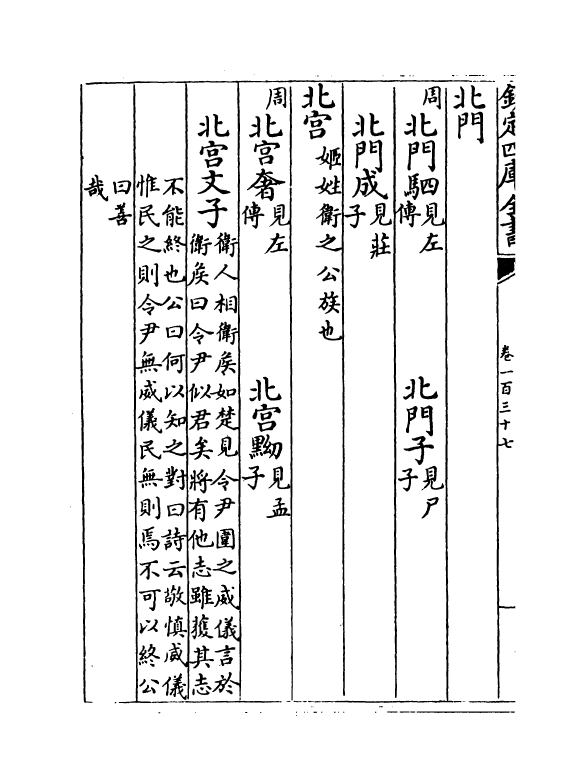 欽定四庫全書
卷一百三十七
北門
周 北門駟見左傳 北門子見尸子
北門成見莊子
北宮 姬姓衛之公族也
周 北宮奢見左傳 北宮黝見孟子
北宮文子衛人相衛侯如楚見令尹圍之威儀言於
衛侯曰令尹似君矣將有他志雖獲其志
不能終也公曰何以知之對曰詩云敬慎威儀
惟民之則令尹無威儀民無則焉不可以終公
曰善
哉